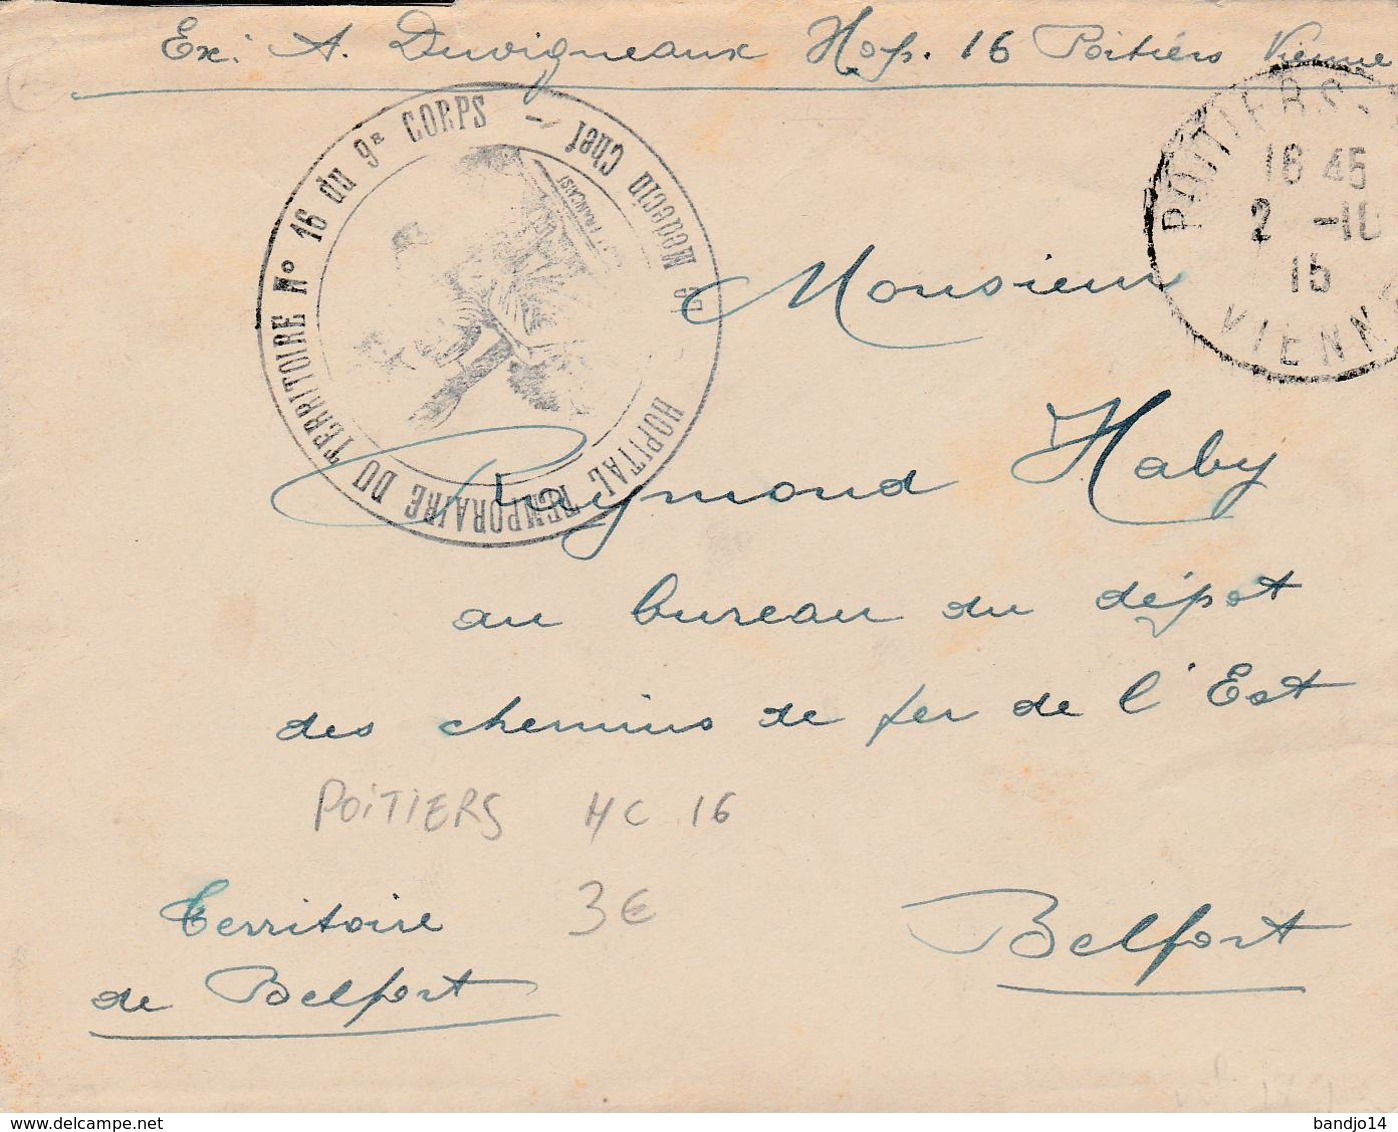 Ex: A. Duvigneaux Hop. 16 Poitiers Vienne
HOPITAL TEMPORAIRE DU TERRITOIRE No 16 du 9e CORPS - Le Médecin Chef -
POITIERS
16 45
2 -10
15
VIENNE
Monsieur
Raymond Haby
au bureau du dépot
des chemins de fer de l'Est
POITIERS HC 16
3€
Territoire
de Belfort
Belfort
www.delcampe.net
bandjo14